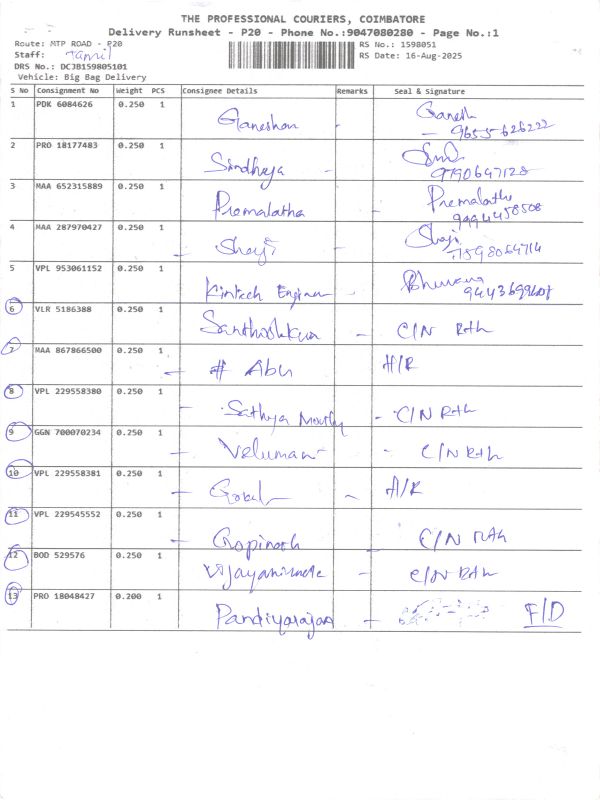 THE PROFESSIONAL COURIERS, COIMBATORE
Delivery Runsheet - P20 - Phone No.:9047080280 - Page No.:1
Route: MTP ROAD - P20 RS No.: 1598051
Staff: Tamil RS Date: 16-Aug-2025
DRS No.: DCJB159805101
Vehicle: Big Bag Delivery
S No Consignment No Weight PCS Consignee Details Remarks Seal & Signature
1 PDK 6084626 0.250 1 Ganeshan - Ganesh
- 9655626222
2 PRO 18177483 0.250 1 Sindhuja -
9790647128
3 MAA 652315889 0.250 1 Premalatha - Premalatha
9994458508
4 MAA 287970427 0.250 1 - Shaji - Shaji
7598064714
5 VPL 953061152 0.250 1 - Kintech Engineer - Bhuvana
6 VLR 5186388 0.250 1 Santhoshkumar - C/N Rth
7 MAA 867866500 0.250 1 - # Abu H/R
8 VPL 229558380 0.250 1 - Sathya Mourthy - C/N Rth
9 GGN 700070234 0.250 1 - Veluman - C/N Rth
10 VPL 229558381 0.250 1 - Gopal - H/R
11 VPL 229545552 0.250 1 - Gopinath C/N Rth
12 BOD 529576 0.250 1 - C/N Rth
13 PRO 18048427 0.200 1 Pandiyarajan - F/D